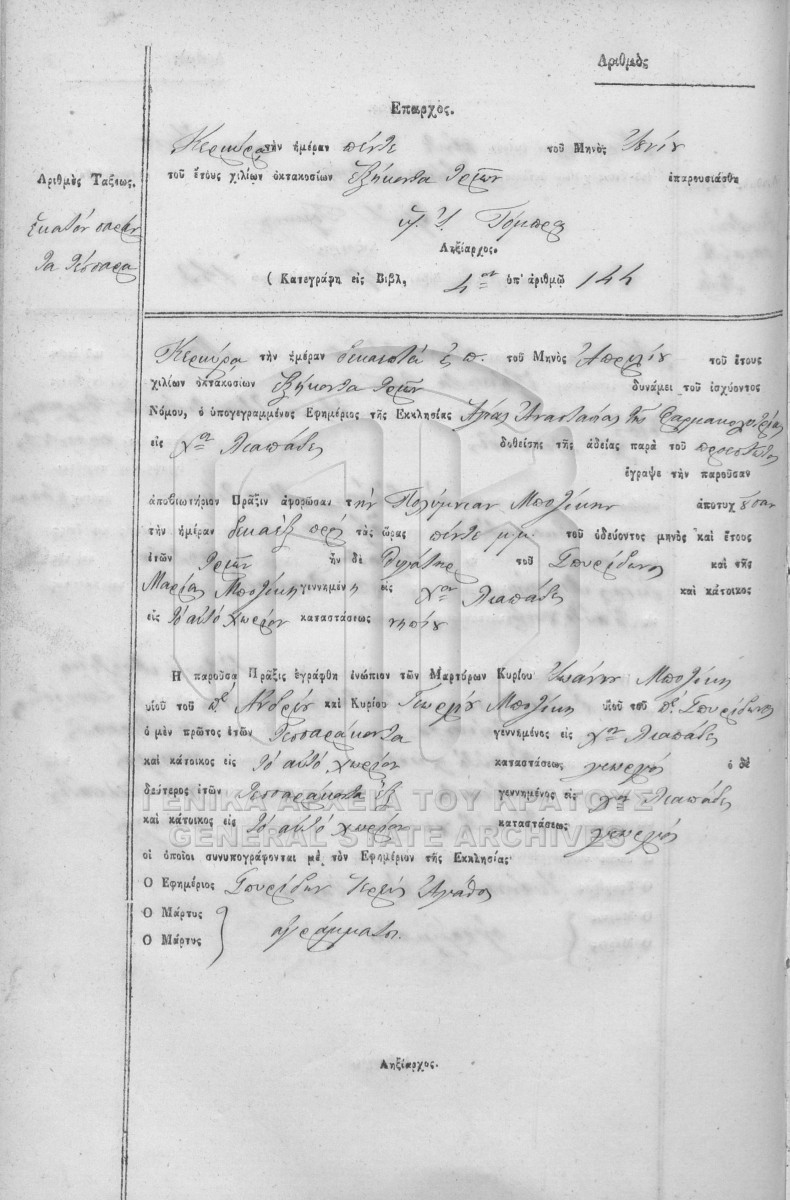 Αριθμὸς
Επαρχος.
Κερκύρα τὴν ἡμέραν πέντε τοῦ Μηνὸς
Αριθμὸς Ταξεως.
τοῦ ἔτους χιλίων ὀκτακοσίων ἑξήκοντα τριῶν ἐπαρουσιάσθη
Ἑκατόν σαράν
τα τέσσαρα
Ληξίαρχος.
( Κατεγράφη εἰς Βιβλ, 4ον ὑπ' ἀριθμῷ 144
Κερκύρα τὴν ἡμέραν τοῦ Μηνὸς Ἀπριλίου τοῦ ἔτους
χιλίων ὀκτακόσίων ἑξήκοντα τριῶν δυνάμει τοῦ ἰσχύοντος
Νόμου, ὁ ὑπογεγραμμένος Ἐφημέριος τῆς Εκκλησίας Ἁγίας Ἀναστασίας τῆς Φαρμακολυτρίας
εἰς χον Λιαπάδες δοθείσης τῆς ἀδείας παρὰ τοῦ προεστῶτος
ἔγραψε τὴν παροῦσαν
ἀποβιωτήριον Πράξιν ἀφορῶσαν τὴν Πολύμνιαν Μπολίκην ἀποτυχοῦσαν
τὴν ἡμέραν δεκαέξ πρὸ τὰς ὥρας πέντε μ.μ. τοῦ ὁδεύοντος μηνὸς καὶ ἔτους
ἐτῶν τριῶν ἦν δὲ θυγάτηρ τοῦ Σπυρίδωνος καὶ τῆς
Μαρίας Μπολίκη γεννημένη εἰς χον Λιαπάδες καὶ κάτοικος
εἰς τὸ αὐτὸ χωρίον καταστάσεως νηπίου
Η παροῦσα Πρᾶξις ἐγράφθη ἐνώπιον τῶν Μαρτύρων Κυρίου Ἰωάννου Μπολίκη
υἱοῦ τοῦ πε Ἀνδρέου καὶ Κυρίου Γεωργίου Μπολίκη υἱοῦ τοῦ πε Σπυρίδωνος
ὁ μὲν πρῶτος ἐτῶν τεσσαράκοντα γεννημένος εἰς χον Λιαπάδες
καὶ κάτοικος εἰς τὸ αὐτὸ χωρίον καταστάσεως γεωργός ὁ δὲ
δεύτερος ἐτῶν τεσσαράκοντα ἕξ γεννημένος εἰς χον Λιαπάδες
ΓΕΝΙΚΑ ΑΡΧΕΙΑ ΤΟΥ ΚΡΑΤΟΥΣ
καὶ κάτοικος εἰς τὸ αὐτὸ χωρίον καταστάσεως γεωργός
GENERAL STATE ARCHIVES
οἱ ὁποῖοι συνυπογράφονται μὲ τὸν Εφημέριον τῆς Εκκλησίας·
Ο Εφημέριος Σπυρίδων Ἱερεύς
Ο Μάρτυς
Ο Μάρτυς ἀγράμματοι.
Ληξίαρχος.